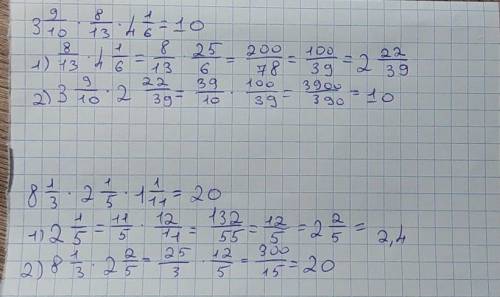 3 9/10 · 8/13 · 4 1/6 = 10
1) 8/13 · 4 1/6 = 8/13 · 25/6 = 200/78 = 100/39 = 2 22/39
2) 3 9/10 · 2 22/39 = 39/10 · 100/39 = 3900/390 = 10
8 1/3 · 2 1/5 · 1 1/11 = 20
1) 2 1/5 = 11/5 · 12/11 = 132/55 = 12/5 = 2 2/5 = 2,4
2) 8 1/3 · 2 2/5 = 25/3 · 12/5 = 300/15 = 20